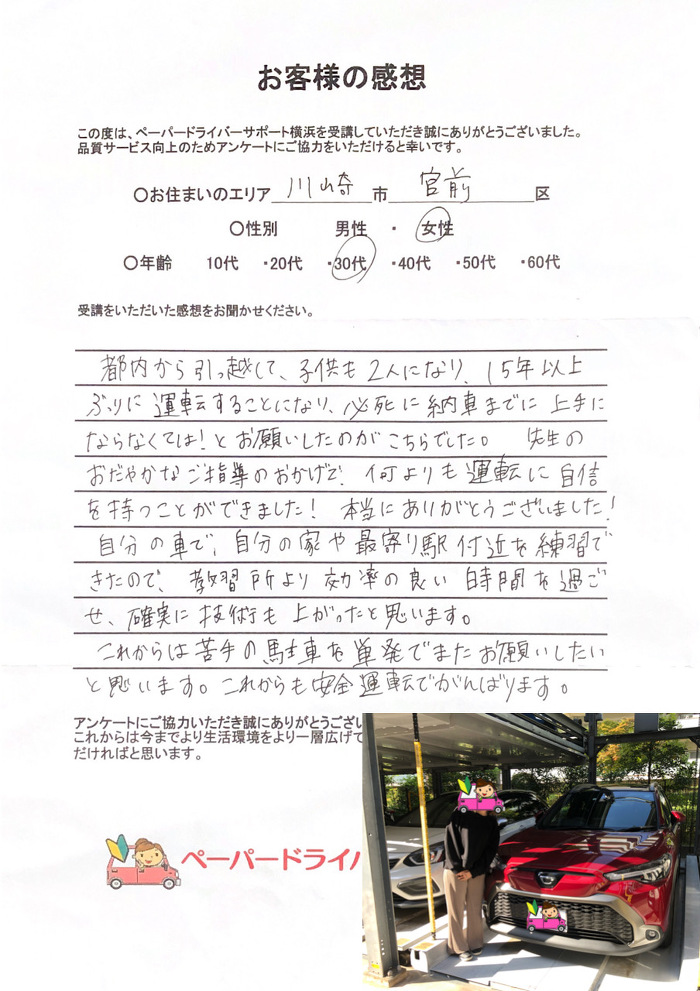 お客様の感想
この度は、ペーパードライバーサポート横浜を受講していただき誠にありがとうございました。
品質サービス向上のためアンケートにご協力をいただけると幸いです。
〇お住まいのエリア 川崎 市 宮前 区
〇性別 男性 ・ 女性
〇年齢 10代 ・20代 ・30代 ・40代 ・50代 ・60代
受講をいただいた感想をお聞かせください。
都内から引っ越して、子供も2人になり、15年以上
ぶりに運転することになり、必死に納車までに上手に
ならなくては!とお願いしたのがこちらでした。 先生の
おだやかなご指導のおかげで、何よりも運転に自信
を持つことができました! 本当にありがとうございました!
自分の車で、自分の家や最寄り駅付近を練習で
きたので、教習所より効率の良い時間を過ご
せ、確実に技術も上がったと思います。
これからは苦手の駐車を単発でまたお願いしたい
と思います。これからも安全運転でがんばります。
アンケートにご協力いただき誠にありがとうござい
これからは今までより生活環境をより一層広げて
だければと思います。
ペーパードライバ